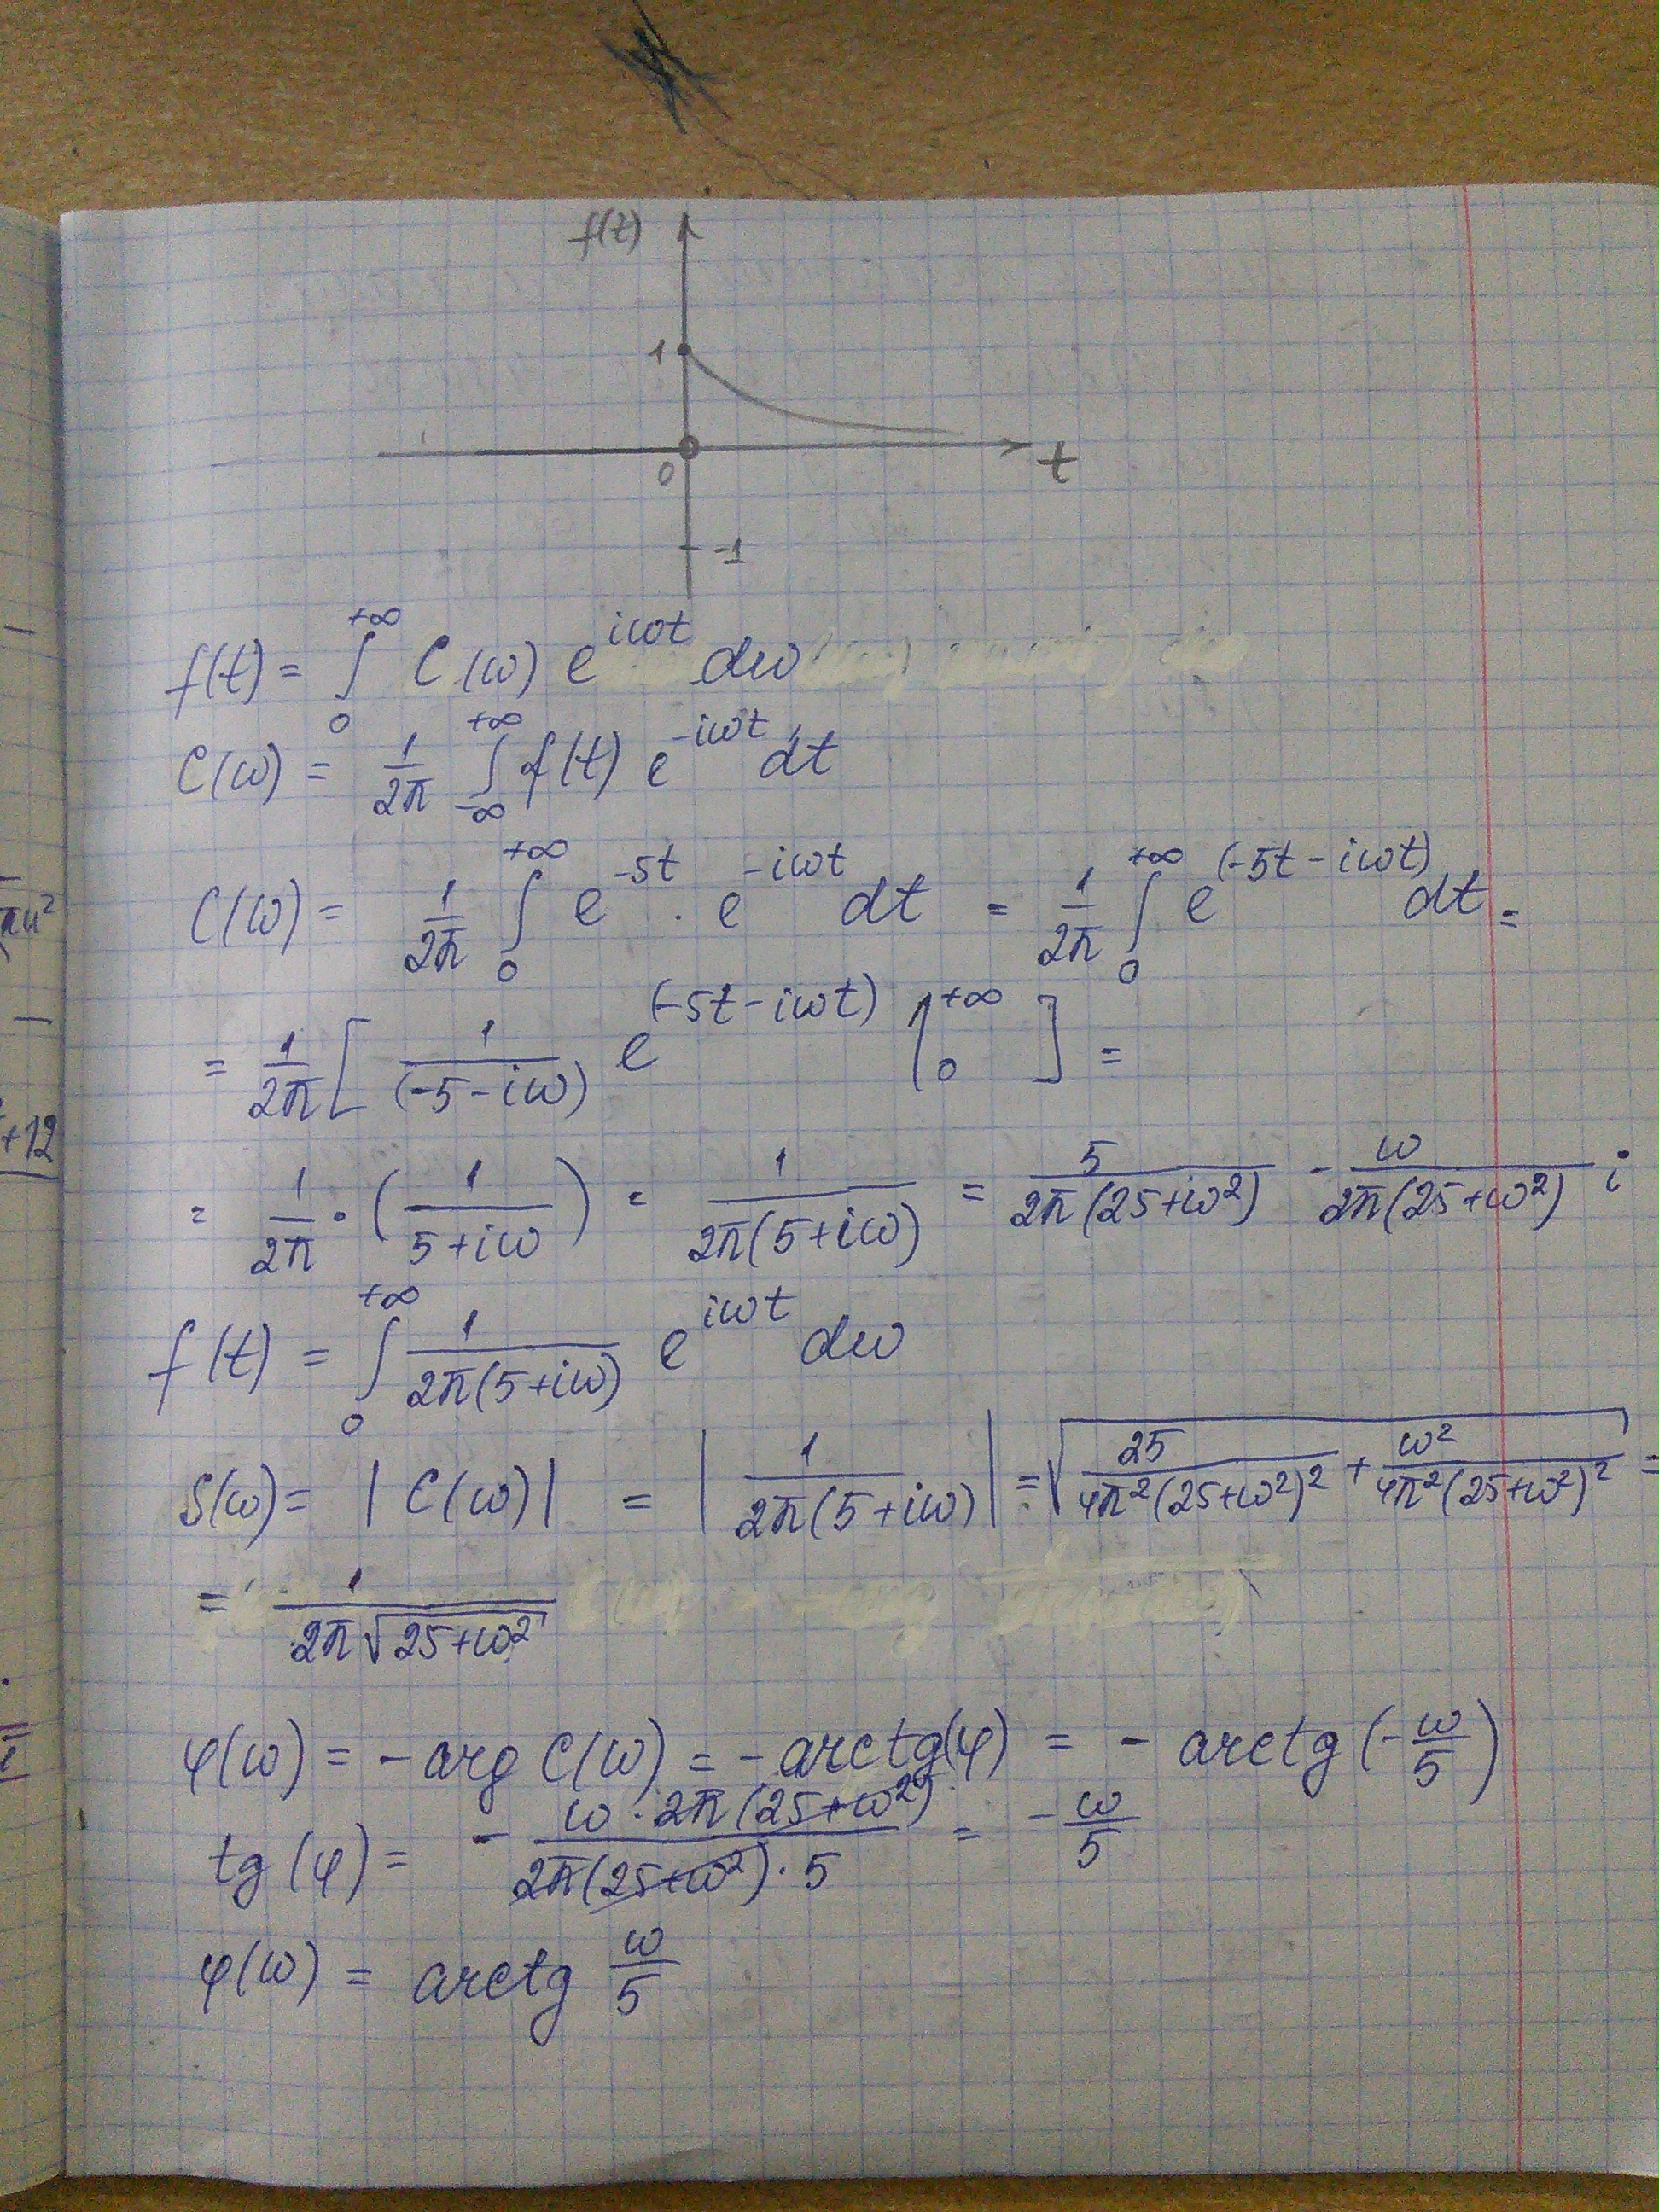 f(t)
1
0
t
-1
f(t) = ∫₀^{+∞} C(ω) e^{iωt} dω
C(ω) = 1/2π ∫_{-∞}^{+∞} f(t) e^{-iωt} dt
C(ω) = 1/2π ∫₀^{+∞} e^{-5t} · e^{-iωt} dt = 1/2π ∫₀^{+∞} e^{(-5t-iωt)} dt =
= 1/2π [ 1/(-5-iω) e^{(-5t-iωt)} |₀^{+∞} ] =
= 1/2π · (1/(5+iω)) = 1/(2π(5+iω)) = 5/(2π(25+ω²)) - ω/(2π(25+ω²)) i
f(t) = ∫₀^{+∞} 1/(2π(5+iω)) e^{iωt} dω
S(ω) = |C(ω)| = |1/(2π(5+iω))| = √(25/(4π²(25+ω²)²) + ω²/(4π²(25+ω²)²)) =
= 1/(2π√(25+ω²))
φ(ω) = -arg C(ω) = -arctg(φ) = - arctg(-ω/5)
tg(φ) = - (ω·2π(25+ω²))/(2π(25+ω²)·5) = -ω/5
φ(ω) = arctg ω/5
+12